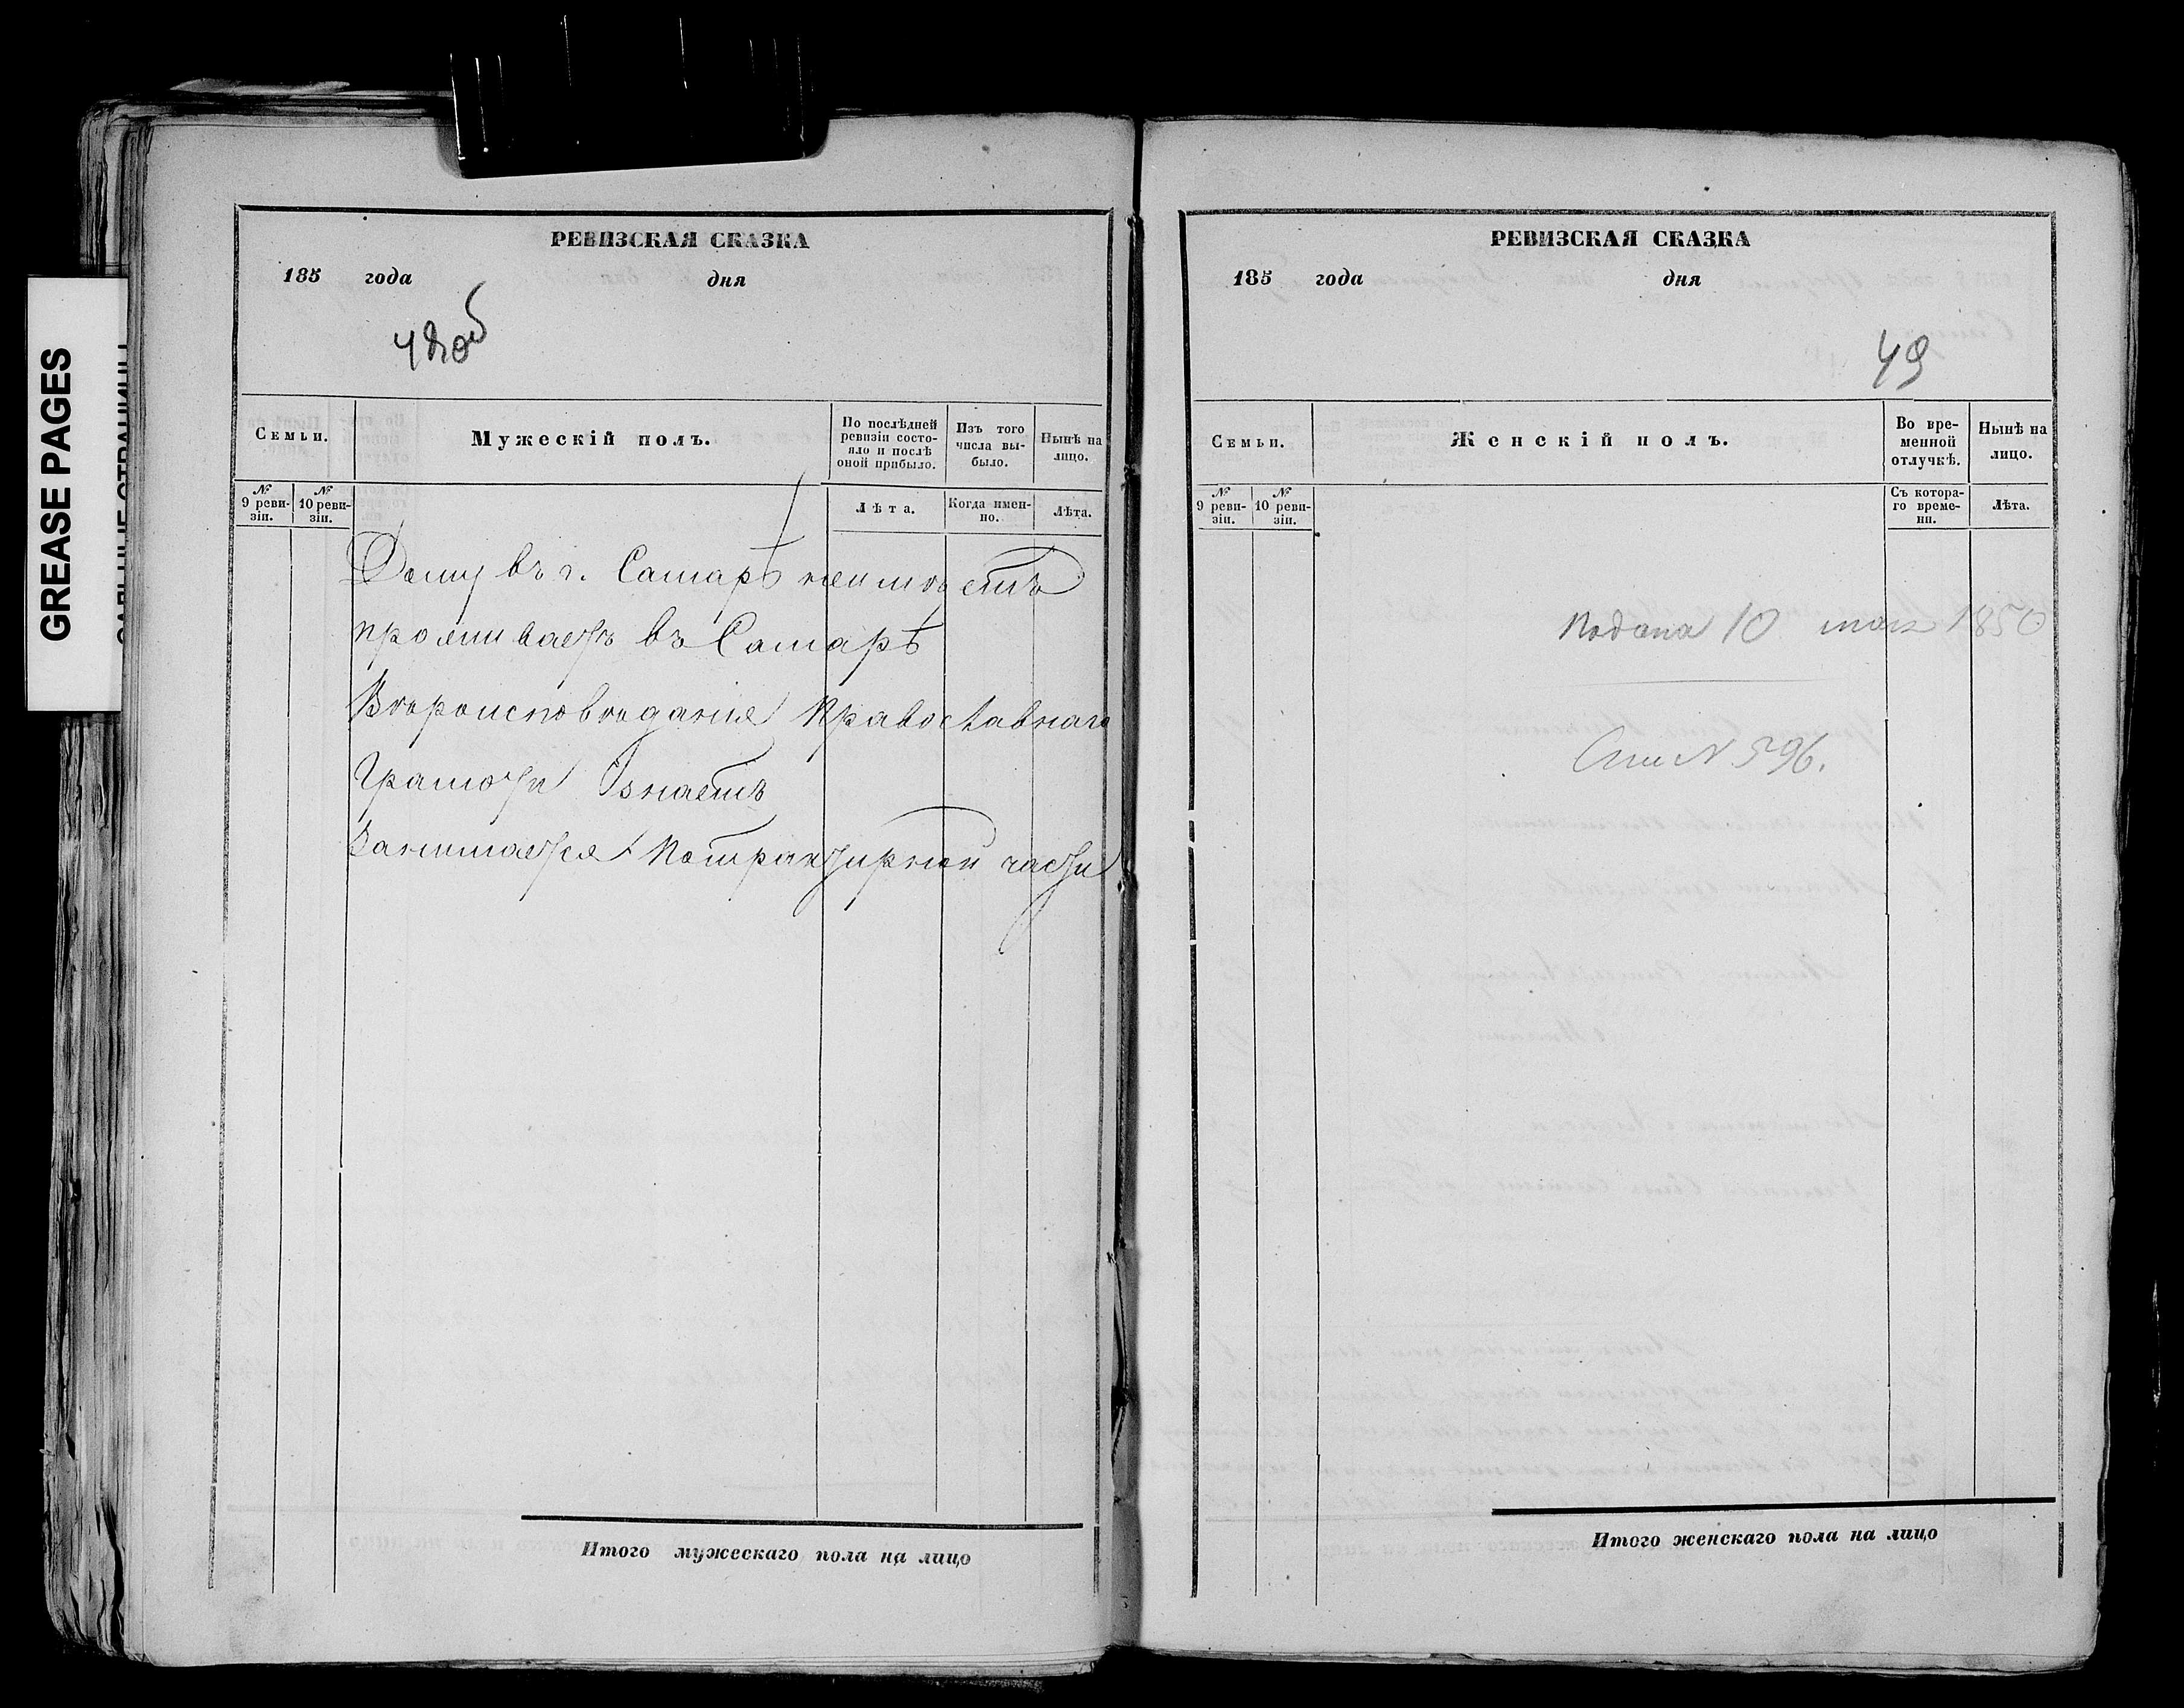 GREASE PAGES
РЕВИЗСКАЯ СКАЗКА
185 года дня
48об
Семьи.
Мужескій полъ.
По послѣдней ревизіи состояло и послѣ оной прибыло.
Изъ того числа выбыло.
Нынѣ на лицо.
№ 9 ревизіи.
№ 10 ревизіи.
Лѣта.
Когда именно.
Лѣта.
Дому въ г. Самарѣ неимѣетъ
проживаетъ въ Самарѣ
Вѣроисповѣданія Православнаго
Грамоти знаетъ
Занимается Потрактирной части
Итого мужескаго пола на лицо
РЕВИЗСКАЯ СКАЗКА
185 года дня
49
Семьи.
Женскій полъ.
Во временной отлучкѣ.
Нынѣ на лицо.
№ 9 ревизіи.
№ 10 ревизіи.
Съ котораго времени.
Лѣта.
Подана 10 1850
№ 596.
Итого женскаго пола на лицо